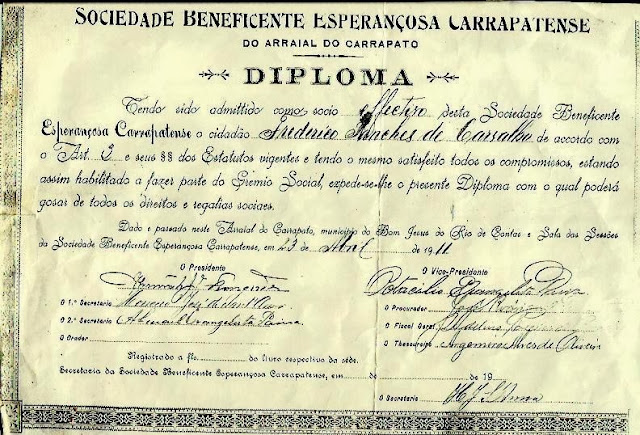 SOCIEDADE BENEFICENTE ESPERANÇOSA CARRAPATENSE
DO ARRAIAL DO CARRAPATO
DIPLOMA
Tendo sido admittido como socio effectivo desta Sociedade Beneficente
Esperançosa Carrapatense o cidadão Frederico Sanches de Carvalho de accordo com
o Art. 3 e seus §§ dos Estatutos vigentes e tendo o mesmo satisfeito todos os compromissos, estando
assim habilitado a fazer parte do Gremio Social, expede-se-lhe o presente Diploma com o qual poderá
gosar de todos os direitos e regalias sociaes.
Dado e passado neste Arraial do Carrapato, municipio do Bom Jesus do Rio de Contas e Sala das Sessões
da Sociedade Beneficente Esperançosa Carrapatense, em 23 de Abril de 1911
O Presidente
O Vice-Presidente
Evangelista Paiva
O 1.º Secretario José de Sant'Anna
O Procurador José
O 2.º Secretario Evangelista Paiva
O Fiscal Geral
O Orador
O Thesoureiro Argemiro Alves de
Registrado a fls. do livro respectivo da séde.
Secretaria da Sociedade Beneficente Esperançosa Carrapatense, em de de 19
O Secretario